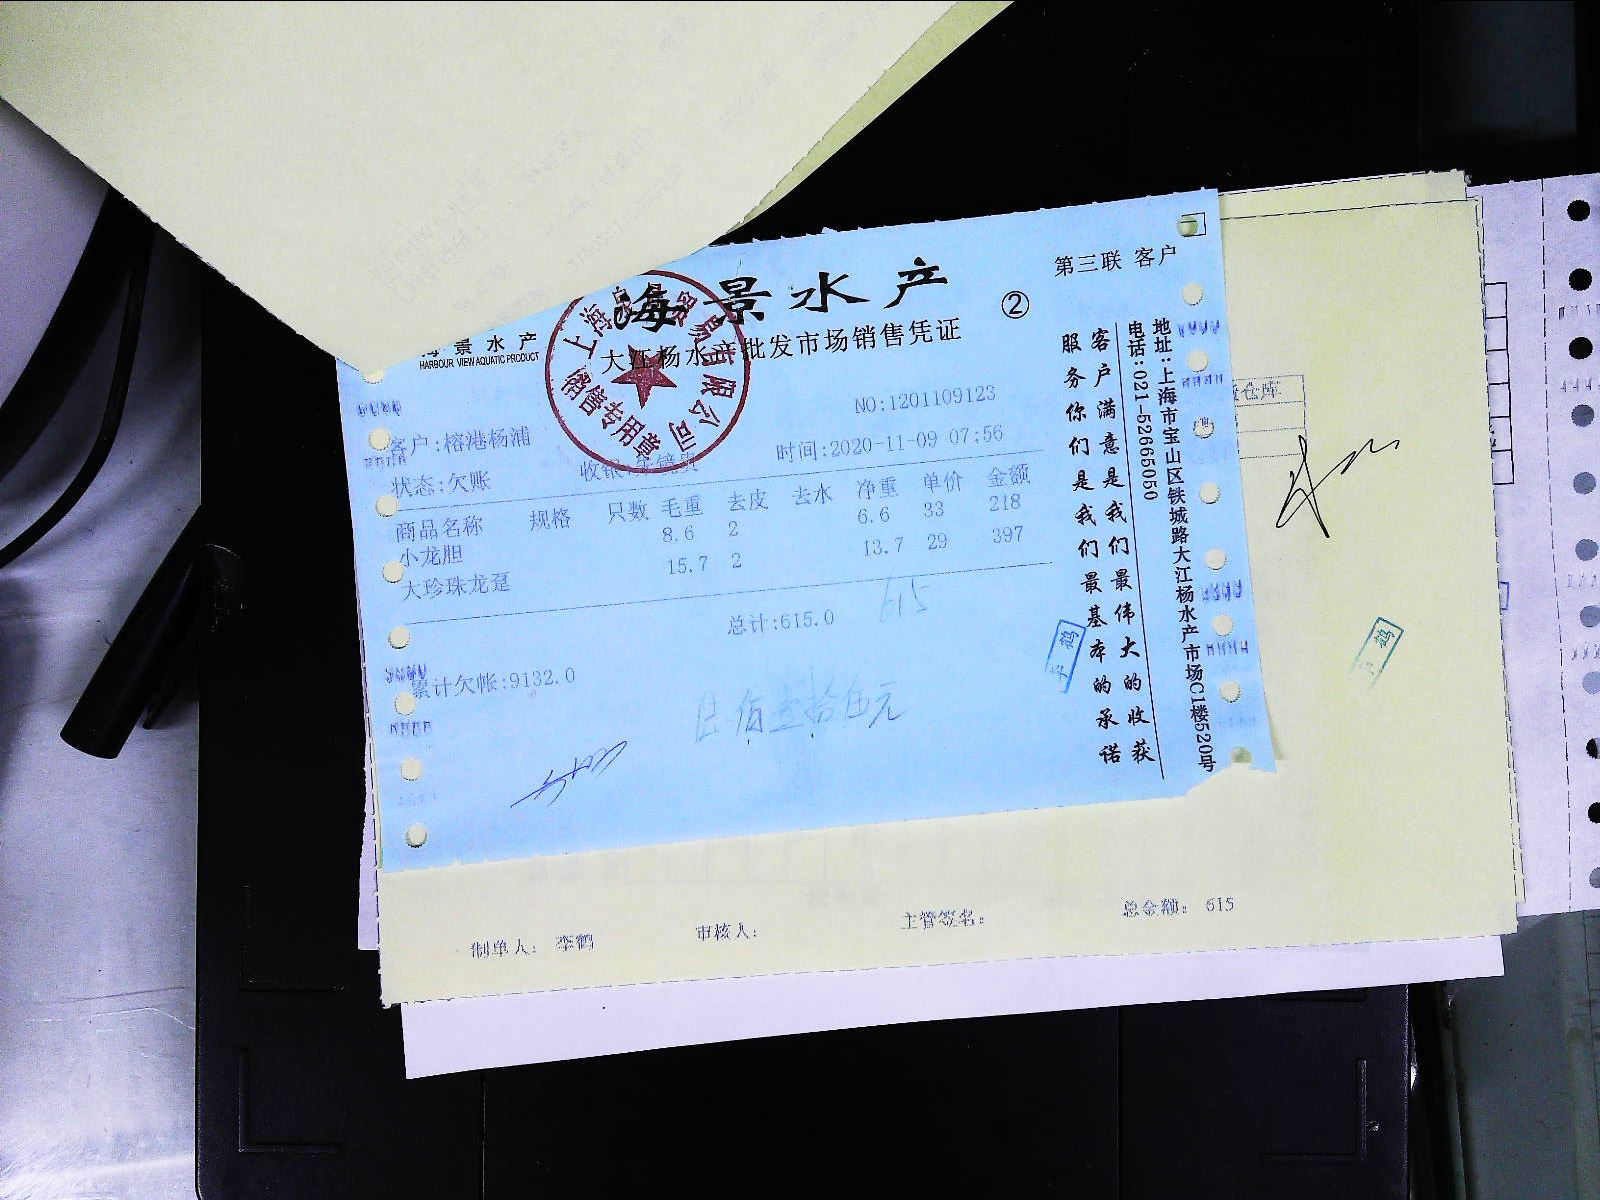 第三联 客户
海景水产
②
海景水产
HARBOUR VIEW AQUATIC PRODUCT
大江杨水产批发市场销售凭证
销售专用章
NO:1201109123
客户:榕港杨浦
时间:2020-11-09 07:56
状态:欠账
收银:
商品名称 规格 只数 毛重 去皮 去水 净重 单价 金额
小龙胆 8.6 2 6.6 33 218
大珍珠龙趸 15.7 2 13.7 29 397
总计:615.0
615
累计欠帐:9132.0
陆佰壹拾伍元
客户满意是我们最伟大的收获
服务你们是我们最基本的承诺
地址:上海市宝山区铁城路大江杨水产市场C1楼520号
电话:021-52665050
仓库
制单人: 李鹤
审核人:
主管签名:
总金额: 615